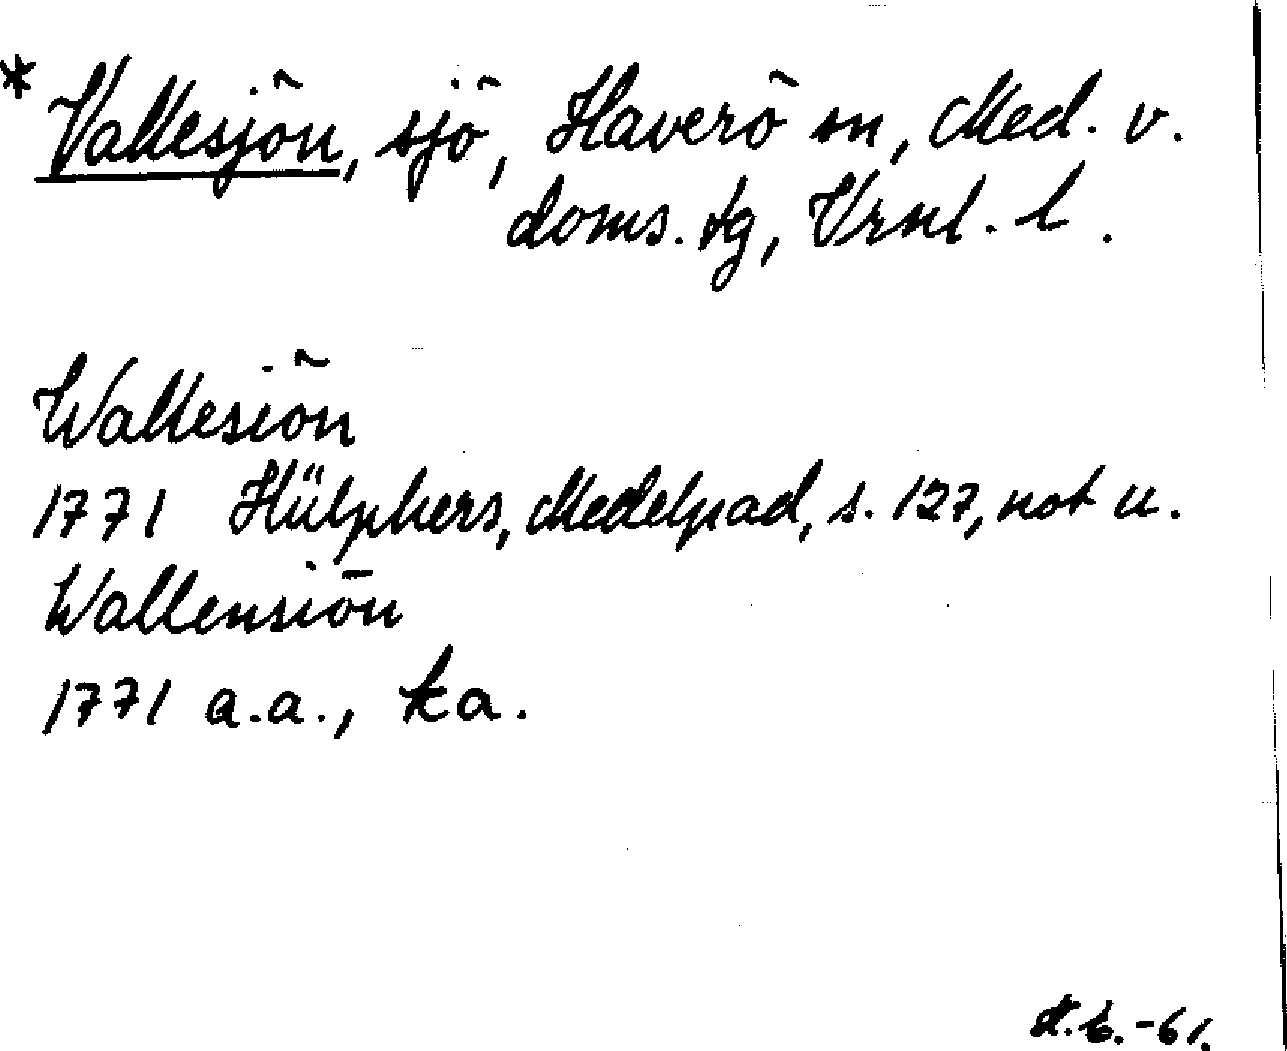 * Vallesjön, sjö, Haverö sn, Med. v.
doms. tg, Vrnl. l.
Wallesiön
1771 Hülphers, Medelpad, s. 127, not u.
Wallensiön
1771 a.a., ka.
-61.